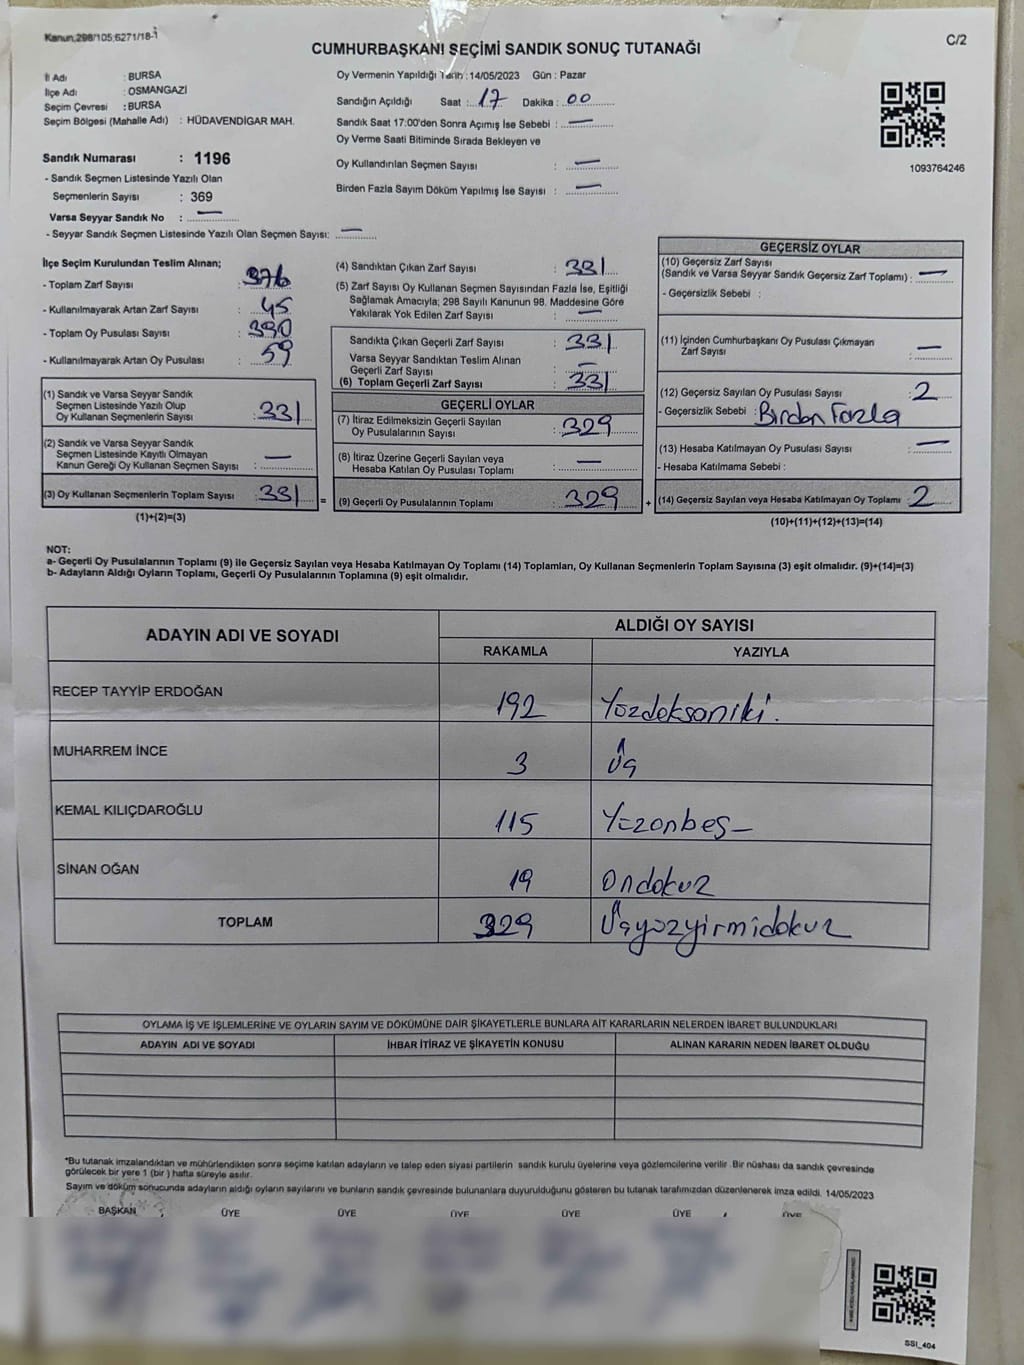 Kanun,298/105;6271/18-1
C/2
CUMHURBAŞKANI SEÇİMİ SANDIK SONUÇ TUTANAĞI
İl Adı : BURSA
İlçe Adı : OSMANGAZİ
Seçim Çevresi : BURSA
Seçim Bölgesi (Mahalle Adı) : HÜDAVENDİGAR MAH.
Sandık Numarası : 1196
- Sandık Seçmen Listesinde Yazılı Olan
Seçmenlerin Sayısı : 369
Varsa Seyyar Sandık No : —
- Seyyar Sandık Seçmen Listesinde Yazılı Olan Seçmen Sayısı: —
Oy Vermenin Yapıldığı Tarih :14/05/2023 Gün : Pazar
Sandığın Açıldığı Saat : 17 Dakika : 00
Sandık Saat 17:00'den Sonra Açımış İse Sebebi : —
Oy Verme Saati Bitiminde Sırada Bekleyen ve
Oy Kullandırılan Seçmen Sayısı : —
Birden Fazla Sayım Döküm Yapılmış İse Sayısı : —
1093764246
İlçe Seçim Kurulundan Teslim Alınan;
- Toplam Zarf Sayısı : 376
- Kullanılmayarak Artan Zarf Sayısı : 45
- Toplam Oy Pusulası Sayısı : 390
- Kullanılmayarak Artan Oy Pusulası : 59
(1) Sandık ve Varsa Seyyar Sandık
Seçmen Listesinde Yazılı Olup
Oy Kullanan Seçmenlerin Sayısı : 331
(2) Sandık ve Varsa Seyyar Sandık
Seçmen Listesinde Kayıtlı Olmayan
Kanun Gereği Oy Kullanan Seçmen Sayısı : —
(3) Oy Kullanan Seçmenlerin Toplam Sayısı : 331 =
(1)+(2)=(3)
(4) Sandıktan Çıkan Zarf Sayısı : 331
(5) Zarf Sayısı Oy Kullanan Seçmen Sayısından Fazla İse, Eşitliği
Sağlamak Amacıyla; 298 Sayılı Kanunun 98. Maddesine Göre
Yakılarak Yok Edilen Zarf Sayısı : —
Sandıkta Çıkan Geçerli Zarf Sayısı : 331
Varsa Seyyar Sandıktan Teslim Alınan
Geçerli Zarf Sayısı : —
(6) Toplam Geçerli Zarf Sayısı : 331
GEÇERLİ OYLAR
(7) İtiraz Edilmeksizin Geçerli Sayılan
Oy Pusulalarının Sayısı : 329
(8) İtiraz Üzerine Geçerli Sayılan veya
Hesaba Katılan Oy Pusulası Toplamı : —
(9) Geçerli Oy Pusulalarının Toplamı : 329 +
GEÇERSİZ OYLAR
(10) Geçersiz Zarf Sayısı
(Sandık ve Varsa Seyyar Sandık Geçersiz Zarf Toplamı) : —
- Geçersizlik Sebebi :
(11) İçinden Cumhurbaşkanı Oy Pusulası Çıkmayan
Zarf Sayısı : —
(12) Geçersiz Sayılan Oy Pusulası Sayısı : 2
- Geçersizlik Sebebi : Birden Fazla
(13) Hesaba Katılmayan Oy Pusulası Sayısı : —
- Hesaba Katılmama Sebebi :
(14) Geçersiz Sayılan veya Hesaba Katılmayan Oy Toplamı : 2
(10)+(11)+(12)+(13)=(14)
NOT:
a- Geçerli Oy Pusulalarının Toplamı (9) ile Geçersiz Sayılan veya Hesaba Katılmayan Oy Toplamı (14) Toplamları, Oy Kullanan Seçmenlerin Toplam Sayısına (3) eşit olmalıdır. (9)+(14)=(3)
b- Adayların Aldığı Oyların Toplamı, Geçerli Oy Pusulalarının Toplamına (9) eşit olmalıdır.
ADAYIN ADI VE SOYADI ALDIĞI OY SAYISI
RAKAMLA YAZIYLA
RECEP TAYYİP ERDOĞAN 192 Yüzdoksaniki.
MUHARREM İNCE 3 Üç
KEMAL KILIÇDAROĞLU 115 Yüzonbeş
SİNAN OĞAN 19 Ondokuz
TOPLAM 329 Üçyüzyirmidokuz
OYLAMA İŞ VE İŞLEMLERİNE VE OYLARIN SAYIM VE DÖKÜMÜNE DAİR ŞİKAYETLERLE BUNLARA AİT KARARLARIN NELERDEN İBARET BULUNDUKLARI
ADAYIN ADI VE SOYADI İHBAR İTİRAZ VE ŞİKAYETİN KONUSU ALINAN KARARIN NEDEN İBARET OLDUĞU
*Bu tutanak imzalandıktan ve mühürlendikten sonra seçime katılan adayların ve talep eden siyasi partilerin sandık kurulu üyelerine veya gözlemcilerine verilir. Bir nüshası da sandık çevresinde
görülecek bir yere 1 (bir ) hafta süreyle asılır.
Sayım ve döküm sonucunda adayların aldığı oyların sayılarını ve bunların sandık çevresinde bulunanlara duyurulduğunu gösteren bu tutanak tarafımızdan düzenlenerek imza edildi. 14/05/2023
BAŞKAN ÜYE ÜYE ÜYE ÜYE ÜYE ÜYE
SSI_404